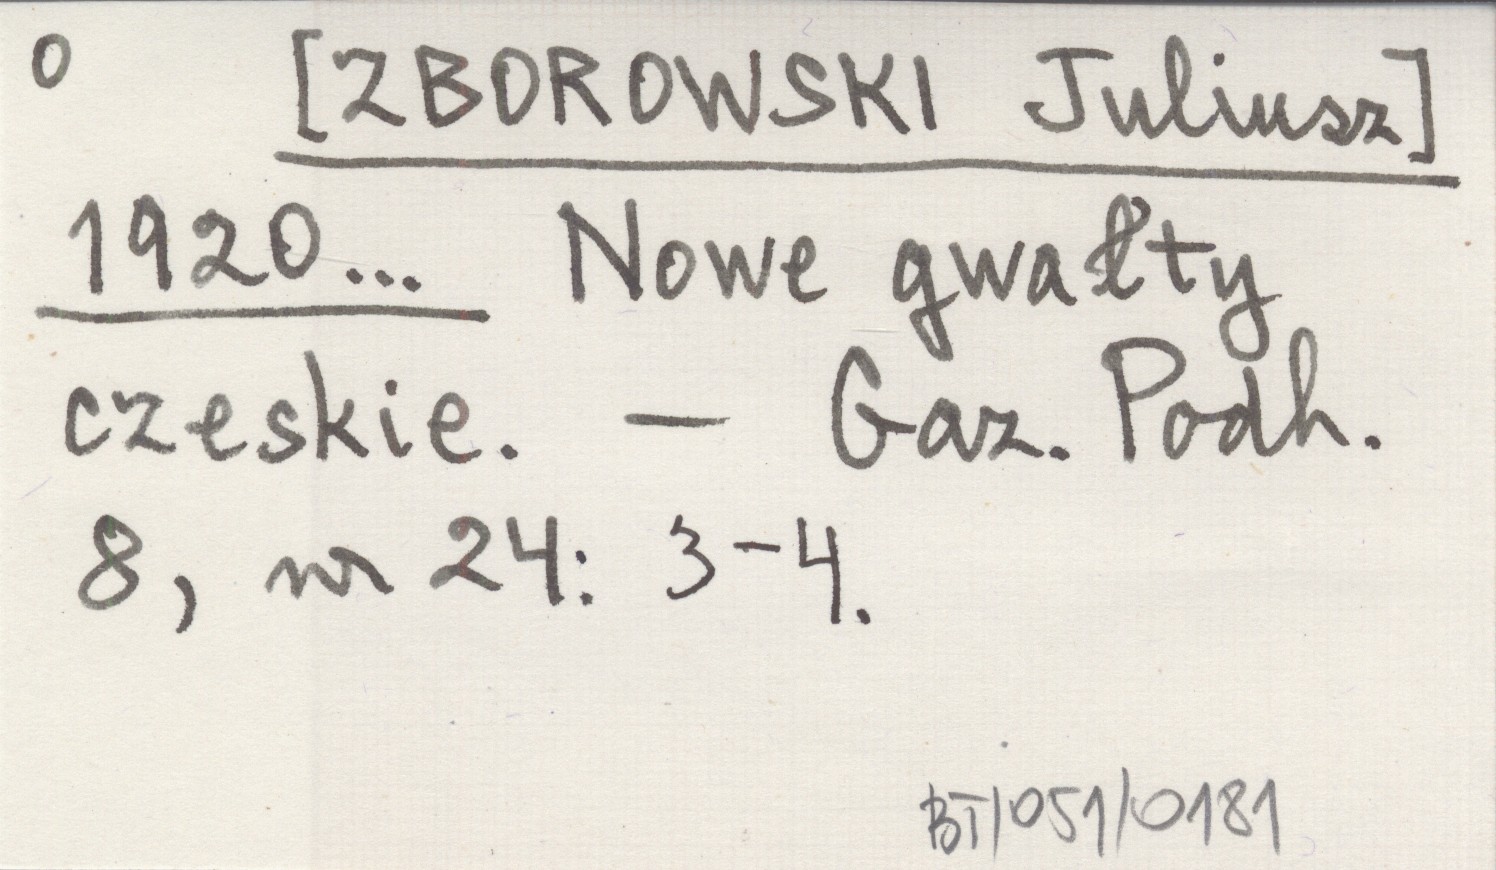 o [ZBOROWSKI Juliusz]
1920... Nowe gwałty
czeskie. — Gaz. Podh.
8, nr 24: 3-4.
BT/051/0181